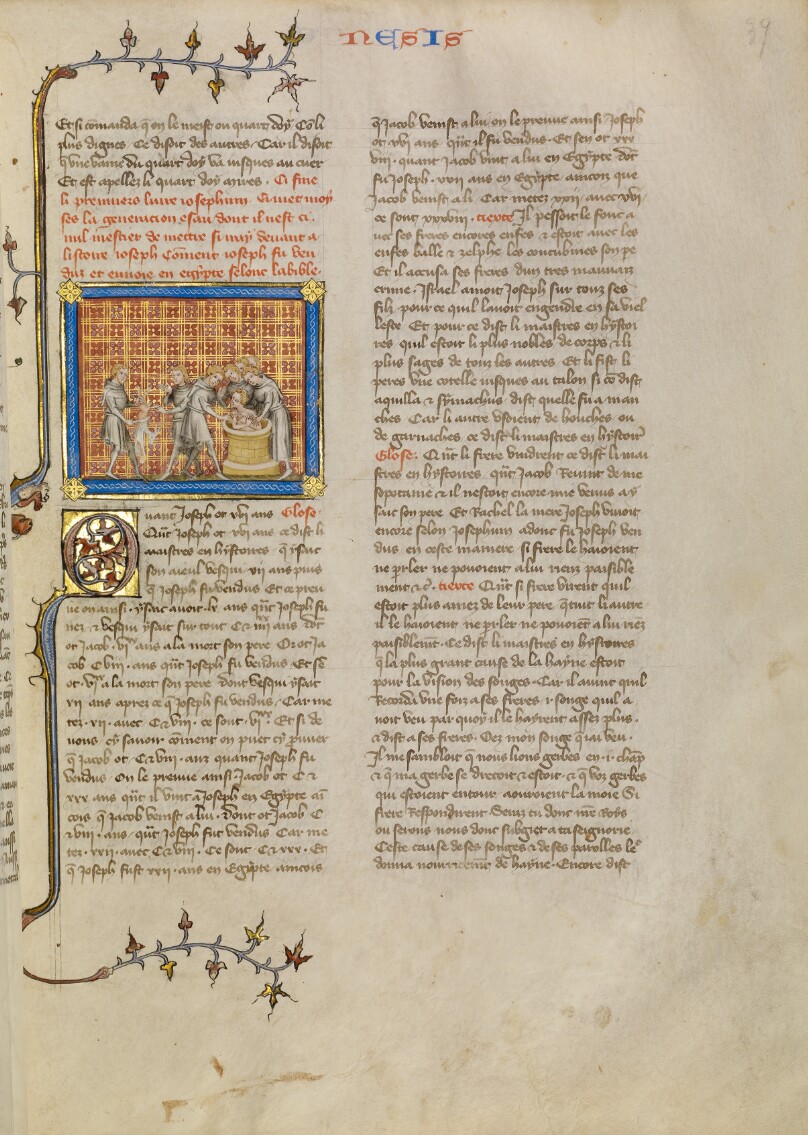 NESIS
39
Et si comanda q on le meist ou quart doy Co li
plus dignes. Ce disoit des autres. Car il disoit
q vne vaine du quart doy va iusques au cuer
Et est apellez li quart doy Ci fine
li premiers liure iosephum. Ci met moy
ses la generacion esau dont il nest ci.
nul mestier de mettre si may deuant a
listoire ioseph Coment ioseph fu ven
duz et enuoie en egypte selonc la bible.
Quant Joseph ot xvi ans Glose.
Qut Joseph ot xvi ans ce dist li
maistres en hystoires q ysaac
son aieul vesqui. xii ans puis
q Joseph fu vendus Et ce preu
ue on ainsi. ysaac auoit. lx. ans qut Joseph fu
nez & vesqui ysaac sur tout
ot Jacob. ans a la mort son pere Or ot Ja
cob C viii. ans qut Joseph fu vendus Et se
ot. a la mort son pere dont vesqui ysaac
xii ans apres ce q Joseph fu vendus. Car me
tez. xii. auec C & viii. ce sont. Et si de
nous. cy sauoir coment on puet cy prouuer
q Jacob ot. C & viii. anz quant Joseph fu
vendus On le preuue ainsi Jacob ot C &
xxx ans qut il vint a Joseph en Egypte ai
cois q Jacob venist a lui. Dont ot Jacob C
& viii. ans. qut Joseph fut vendus Car me
tez. xxii. auec C & viii. Ce sont. C & xxx. Et
q Joseph fust xxii. ans en Egypte aincois
q Jacob venist a lui. on le preuue ainsi Joseph
ot xvi ans qut il fu vendus. Et sen ot xxx
viii. quant Jacob vint a lui en Egypte dot
fu Joseph. xxii ans en egypte aincois que
Jacob venist a li. Car metez xxii. auec xvi.
ce sont xxxviii. tiexte Il pessoit le fouc a
uec ses freres encores enfes. & estoit auec les
enfes balle & zelphe les concubines son pe
Et il accusa ses freres dun tres mauuaiz
crime. Israel amoit Joseph sur touz ses
filz. pour ce quil lauoit engendre en sa viel
lesce Et pour ce dist li maistres en hystoi
res quil estoit li plus nobles de corps & li
plus sages de touz les autres Et li fist li
peres vne cotelle iusques au talon si co dist
aquilla & symachus dist quelle fu a man
ches Car li autre vsoient de houches ou
de garnaches ce dist li maistres en hystoir
Glose. Qut li frere vendirent ce dist li mai
stres en hystoires. qut Jacob Reuint de me
sopotame & il nestoit encore mie venus a y
saac son pere Et Rachel la mere Joseph viuoit
encore selon Josephum adonc fu Joseph ven
dus en ceste maniere si frere le haioient
ne parler ne pouoient a lui riens paisible
ment &c. tiexte Qut si frere virent quil
estoit plus amez de leur pere q tuit li autre
il le haioient ne parler ne pouoient a lui riez
paisiblement. Ce dist li maistres en hystoires
q la plus grant cause de la hayne estoit
pour la vision des songes. Car il auint quil
Recorda vne foiz a ses freres. i. songe quil a
uoit veu par quoy il le hayrent assez plus.
& dist a ses freres. Oez mon songe q iai veu.
Il me sembloit q nous lions gerbes en. i. chap
& q ma gerbe se drecoit & estoit. & q voz gerbes
qui estoient entour. aouroient la moie Si
frere Respondirent Seraz tu donc nre Roys
ou serons nous donc subget a ta seignorie
Ceste cause de ses songes & de ses paroles le
donna nourrissemt de hayne. Encore dist